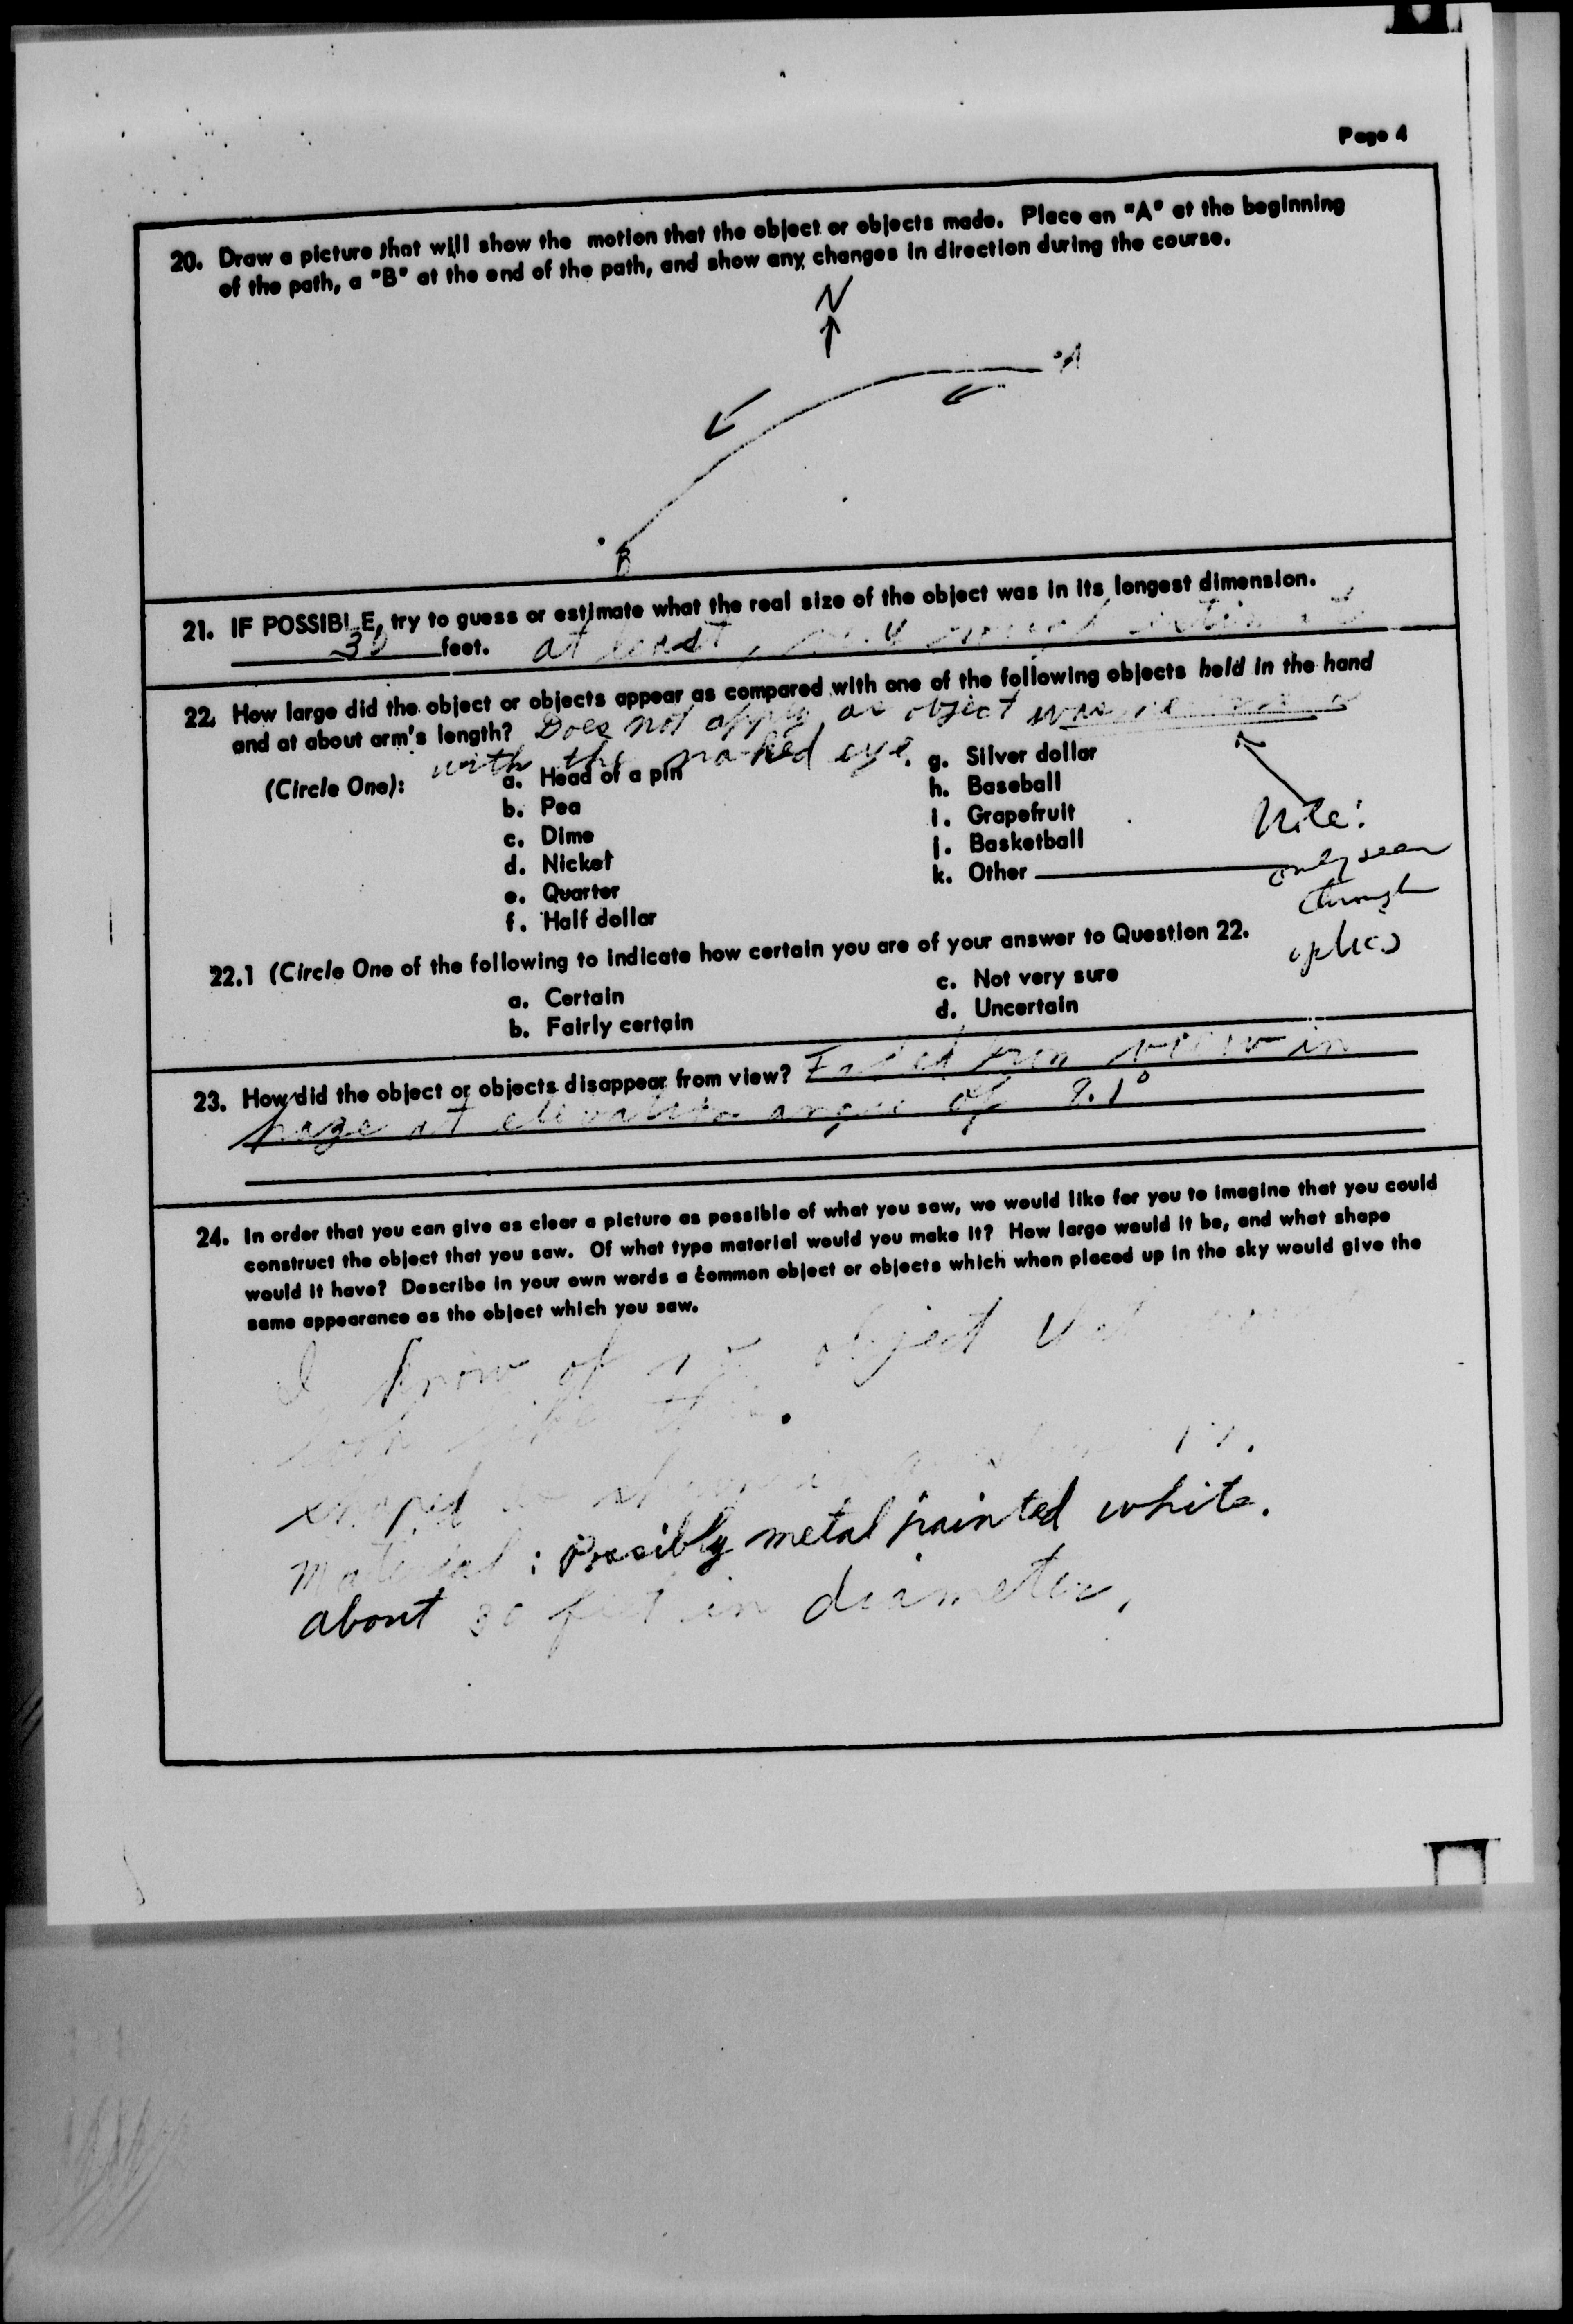 Page 4
20. Draw a picture that will show the motion that the object or objects made. Place an "A" at the beginning
of the path, a "B" at the end of the path, and show any changes in direction during the course.
N
A
B
21. IF POSSIBLE, try to guess or estimate what the real size of the object was in its longest dimension.
30 feet. at least,
22. How large did the object or objects appear as compared with one of the following objects held in the hand
and at about arm's length? Does not apply as object was
with the naked eye.
(Circle One):
a. Head of a pin
b. Pea
c. Dime
d. Nickel
e. Quarter
f. Half dollar
g. Silver dollar
h. Baseball
i. Grapefruit
j. Basketball
k. Other
Note:
only seen
through
optics
22.1 (Circle One of the following to indicate how certain you are of your answer to Question 22.
a. Certain
b. Fairly certain
c. Not very sure
d. Uncertain
23. How did the object or objects disappear from view? Faded from view in
haze at elevation angle of 9.1°
24. In order that you can give as clear a picture as possible of what you saw, we would like for you to imagine that you could
construct the object that you saw. Of what type material would you make it? How large would it be, and what shape
would it have? Describe in your own words a common object or objects which when placed up in the sky would give the
same appearance as the object which you saw.
I know of no object that
look like this.
shaped as shown in
Material: Possibly metal painted white.
about 30 feet in diameter.